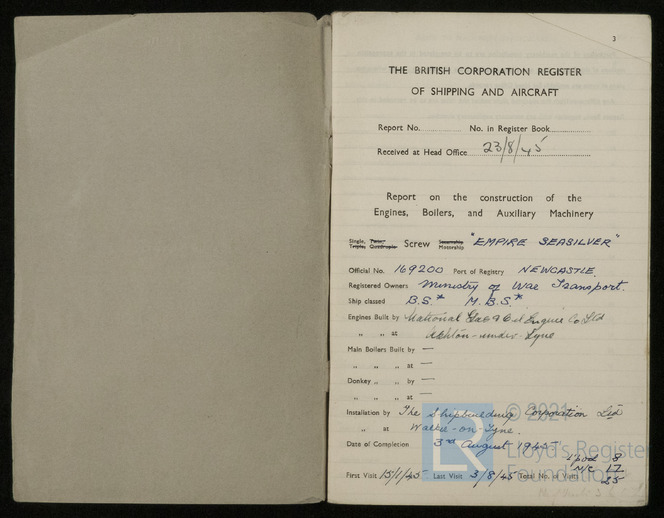 3
THE BRITISH CORPORATION REGISTER
OF SHIPPING AND AIRCRAFT
Report No. No. in Register Book
Received at Head Office 23/8/45
Report on the construction of the
Engines, Boilers, and Auxiliary Machinery
Single, Twin, Triple, Quadruple Screw Steamship Motorship "EMPIRE SEASILVER"
Official No. 169200 Port of Registry NEWCASTLE.
Registered Owners Ministry of War Transport.
Ship classed B.S.* M.B.S.*
Engines Built by National Gas & Oil Engine Co Ltd
„ „ at Ashton-under-Lyne
Main Boilers Built by —
„ „ „ at —
Donkey „ „ by —
„ „ „ at —
Installation by The Shipbuilding Corporation Ltd
„ at Walker-on-Tyne.
Date of Completion 3rd August 1945
L'pool 8
N/c 17
First Visit 15/1/45 Last Visit 3/8/45 Total No. of Visits 25
© 2021
LR
Lloyd's Register
Foundation